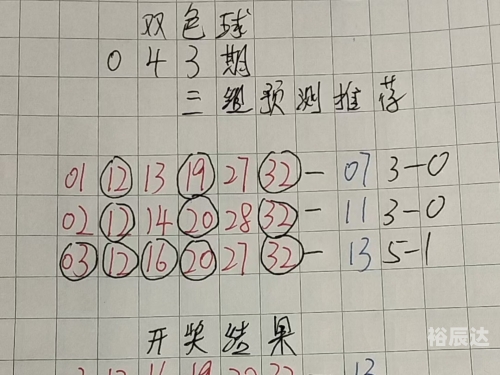 双色球
043期
三组预测推荐
01 12 13 19 27 32 — 07 3-0
02 12 14 20 28 32 — 11 3-0
03 12 16 20 27 32 — 13 5-1
开奖结果
3 12 16 19 20 32 13
裕辰达